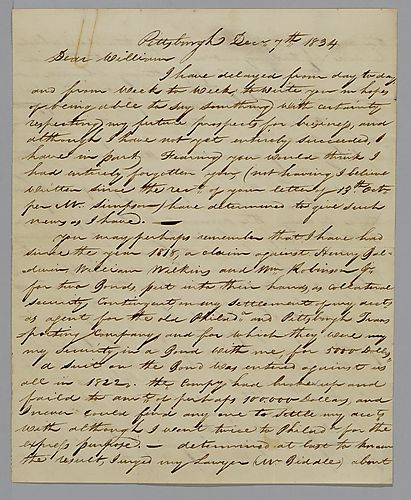 Pittsburgh Decr 7th 1834
Dear William
I have delayed from day to day
and from week to week, to write you in hopes
of being able to say something with certainty
respecting my future prospects for business, and
although I have not yet entirely succeeded, I
have in part. Fearing you would think I
had entirely forgotten you (not having I believe
written since the rect of your letter of 15th Octr
per Mr. Simpson) have determined to give such
news as I have. —
You may perhaps remember that I have had
since the year 1818, a claim against Henry Bal-
dwin, William Wilkins and Wm Robinson Jr
for two Bonds, put into their hands as collateral
security Contingent on my settlement of my accts
as agent for the old Philada and Pittsburgh Trans
porting Company and for which they were my
my Security, in a Bond with me, for 5000 Dolls,
a suit on the Bond was entered against us
all in 1822. The Compy had broke up and
faild to the amt of perhaps 100,000 Dollars, and
I never could find any one to settle my accts
with although I went twice to Philada for the
express purpose — determined at last to know
the result, I urged my Lawyer (Mr Biddle) about